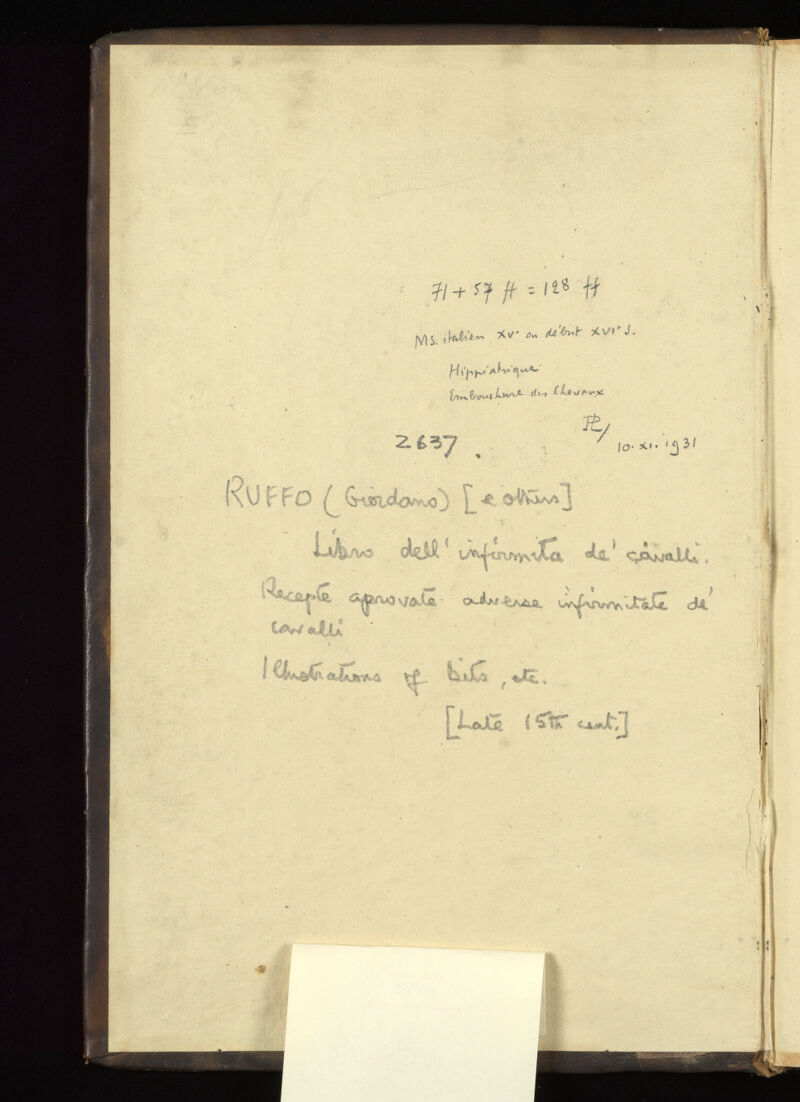 71 + 57 ff = 128 ff
Ms. italien XVe ou début XVIe s.
Hippiatrique
Embouchure des Chevaux
10.XI.1931
2637.
RUFFO (Giordano) [& others]
Libro dell' infirmita de' cavalli.
Recepte aprovate adverse infirmitate de'
cavalli
Illustrations of bits, etc.
[Late 15th cent.]